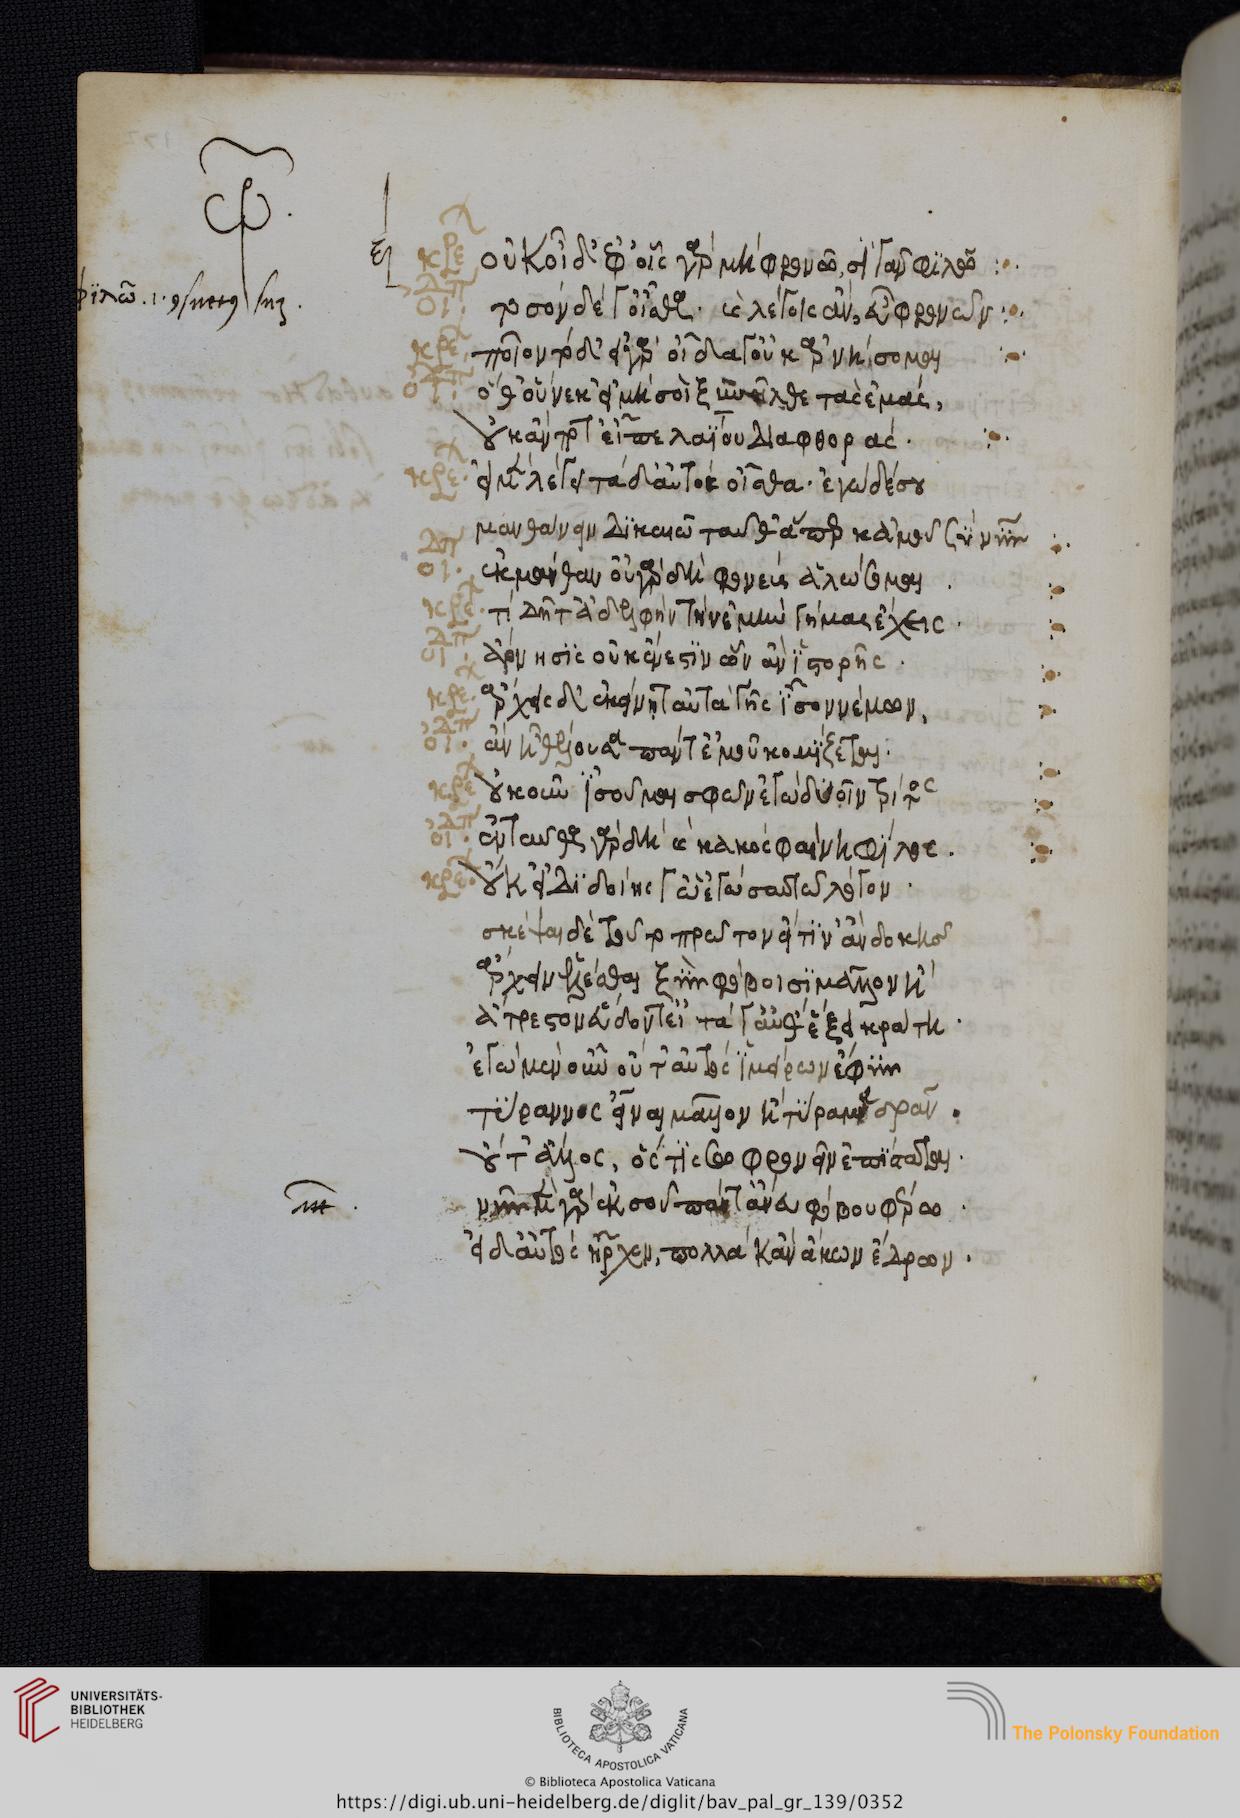 κρε οὐκ οἶδ' ἐφ' οἷς γὰρ μὴ φρονῶ, σιγᾶν φϊλῶ :
οἰ. τὸ σόν δέ γ' οἶσθα · καὶ λέγοις ἂν, εὖ φρονῶν :
κρε ποῖον τόδ' εἰ γὰρ οἶδα γ' οὐκ ἀρνήσομαι :
οἰ. ὁθ' οὕνεκ' εἰ μὴ σοὶ ξυνῆλθε τὰς ἐμάς,
οὐκ ἄν ποτ' εἶπε λαϊου διαφθοράς ·
κρε. εἰ μὲν λέγει τάδ' αὐτὸς οἶσθα · ἐγὼ δέ σου
μανθάνειν δϊκαιῶ ταῦθ' ἅπερ κἀμοῦ σὺ νῦν
οἰ. ἐκμάνθαν οὐ γὰρ δὴ φονεὺς ἁλώσομαι ·
κρε. τί δῆτ' ἀδελφὴν τὴν ἐμὴν γήμας ἔχεις ·
οἰ. ἄρνησϊς οὐκ ἔνεστϊν ὧν ἀνϊστορῆς ·
κρε. ἄρχεις δ' ἐκείνη ταὐτὰ γῆς ἴσον νέμων,
οἰ. ἂν ᾖ θέλουσα πάντ' ἐμοῦ κομίζεται ·
κρε οὔκουν ἰσοῦμαι σφῶν ἐγὼ δυοῖν τρίτος
οἰ. ἐνταῦθα γὰρ δὴ καὶ κακὸς φαίνη φίλος .
κρε. οὔκ εἰ δϊδοίης γ' ὡς ἐγὼ σαυτῶ λόγον ·
σκέψαι δὲ τοῦτο πρῶτον εἴ τϊν' ἂν δοκεῖς
ἄρχειν ἑλέσθαι ξὺν φόβοισϊ μᾶλλον ἢ
ἄτρεστον εὕδοντ' εἰ τά γ' αὔθ' ἕξει κράτη ·
ἐγὼ μὲν οὖν οὔτ' αὐτὸς ἱμείρων ἔφυν
τύραννος εἶναι μᾶλλον ἢ τύραννα δρᾶν .
οὔτ' ἄλλος, ὅστϊς σωφρονεῖν ἐπίσταται ·
νῦν μὲν γὰρ ἐκ σοῦ πάντ' ἄνευ φόβου φέρω ·
εἰ δ' αὐτὸς ἦρχον, πολλὰ κἂν ἄκων ἔδρων ·
UNIVERSITÄTS-
BIBLIOTHEK
HEIDELBERG
BIBLIOTECA APOSTOLICA VATICANA
The Polonsky Foundation
© Biblioteca Apostolica Vaticana
https://digi.ub.uni-heidelberg.de/diglit/bav_pal_gr_139/0352